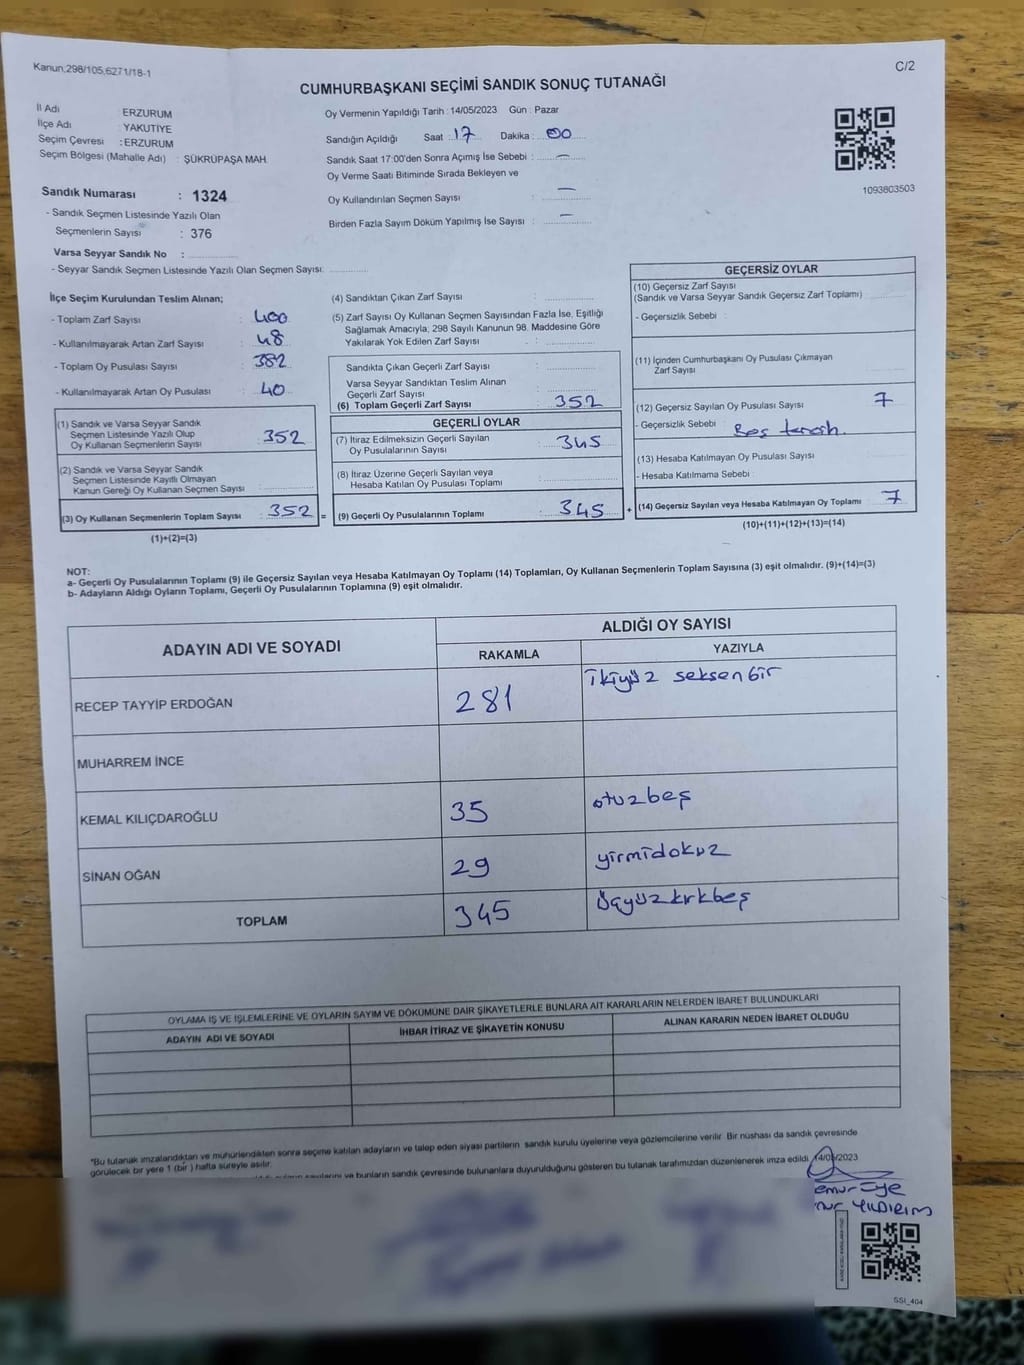 Kanun;298/105,6271/18-1
C/2
CUMHURBAŞKANI SEÇİMİ SANDIK SONUÇ TUTANAĞI
İl Adı ERZURUM
İlçe Adı YAKUTİYE
Seçim Çevresi : ERZURUM
Seçim Bölgesi (Mahalle Adı) : ŞÜKRÜPAŞA MAH.
Oy Vermenin Yapıldığı Tarih : 14/05/2023 Gün : Pazar
Sandığın Açıldığı Saat : 17 Dakika : 00
Sandık Saat 17:00'den Sonra Açımış İse Sebebi : —
Oy Verme Saati Bitiminde Sırada Bekleyen ve
Oy Kullandırılan Seçmen Sayısı —
Birden Fazla Sayım Döküm Yapılmış İse Sayısı : —
1093803503
Sandık Numarası : 1324
- Sandık Seçmen Listesinde Yazılı Olan
Seçmenlerin Sayısı : 376
Varsa Seyyar Sandık No :
- Seyyar Sandık Seçmen Listesinde Yazılı Olan Seçmen Sayısı:
İlçe Seçim Kurulundan Teslim Alınan;
- Toplam Zarf Sayısı : 400
- Kullanılmayarak Artan Zarf Sayısı : 48
- Toplam Oy Pusulası Sayısı : 382
- Kullanılmayarak Artan Oy Pusulası : 40
(1) Sandık ve Varsa Seyyar Sandık
Seçmen Listesinde Yazılı Olup
Oy Kullanan Seçmenlerin Sayısı : 352
(2) Sandık ve Varsa Seyyar Sandık
Seçmen Listesinde Kayıtlı Olmayan
Kanun Gereği Oy Kullanan Seçmen Sayısı
(3) Oy Kullanan Seçmenlerin Toplam Sayısı : 352 =
(1)+(2)=(3)
(4) Sandıktan Çıkan Zarf Sayısı :
(5) Zarf Sayısı Oy Kullanan Seçmen Sayısından Fazla İse, Eşitliği
Sağlamak Amacıyla; 298 Sayılı Kanunun 98. Maddesine Göre
Yakılarak Yok Edilen Zarf Sayısı :
Sandıkta Çıkan Geçerli Zarf Sayısı :
Varsa Seyyar Sandıktan Teslim Alınan
Geçerli Zarf Sayısı :
(6) Toplam Geçerli Zarf Sayısı : 352
GEÇERLİ OYLAR
(7) İtiraz Edilmeksizin Geçerli Sayılan
Oy Pusulalarının Sayısı : 345
(8) İtiraz Üzerine Geçerli Sayılan veya
Hesaba Katılan Oy Pusulası Toplamı :
(9) Geçerli Oy Pusulalarının Toplamı : 345 +
GEÇERSİZ OYLAR
(10) Geçersiz Zarf Sayısı
(Sandık ve Varsa Seyyar Sandık Geçersiz Zarf Toplamı)
- Geçersizlik Sebebi :
(11) İçinden Cumhurbaşkanı Oy Pusulası Çıkmayan
Zarf Sayısı
(12) Geçersiz Sayılan Oy Pusulası Sayısı 7
- Geçersizlik Sebebi :
(13) Hesaba Katılmayan Oy Pusulası Sayısı
- Hesaba Katılmama Sebebi :
(14) Geçersiz Sayılan veya Hesaba Katılmayan Oy Toplamı 7
(10)+(11)+(12)+(13)=(14)
NOT:
a- Geçerli Oy Pusulalarının Toplamı (9) ile Geçersiz Sayılan veya Hesaba Katılmayan Oy Toplamı (14) Toplamları, Oy Kullanan Seçmenlerin Toplam Sayısına (3) eşit olmalıdır. (9)+(14)=(3)
b- Adayların Aldığı Oyların Toplamı, Geçerli Oy Pusulalarının Toplamına (9) eşit olmalıdır.
ADAYIN ADI VE SOYADI
ALDIĞI OY SAYISI
RAKAMLA YAZIYLA
RECEP TAYYİP ERDOĞAN 281 ikiyüz seksenbir
MUHARREM İNCE
KEMAL KILIÇDAROĞLU 35 otuzbeş
SİNAN OĞAN 29 yirmidokuz
TOPLAM 345 Üçyüzkırkbeş
OYLAMA İŞ VE İŞLEMLERİNE VE OYLARIN SAYIM VE DÖKÜMÜNE DAİR ŞİKAYETLERLE BUNLARA AİT KARARLARIN NELERDEN İBARET BULUNDUKLARI
ADAYIN ADI VE SOYADI İHBAR İTİRAZ VE ŞİKAYETİN KONUSU ALINAN KARARIN NEDEN İBARET OLDUĞU
*Bu tutanak imzalandıktan ve mühürlendikten sonra seçime katılan adayların ve talep eden siyasi partilerin sandık kurulu üyelerine veya gözlemcilerine verilir. Bir nüshası da sandık çevresinde
görülecek bir yere 1 (bir) hafta süreyle asılır.
sayılarını ve bunların sandık çevresinde bulunanlara duyurulduğunu gösteren bu tutanak tarafımızdan düzenlenerek imza edildi. 14/05/2023
emur Üye
nur YILDIRIM
SSI_404